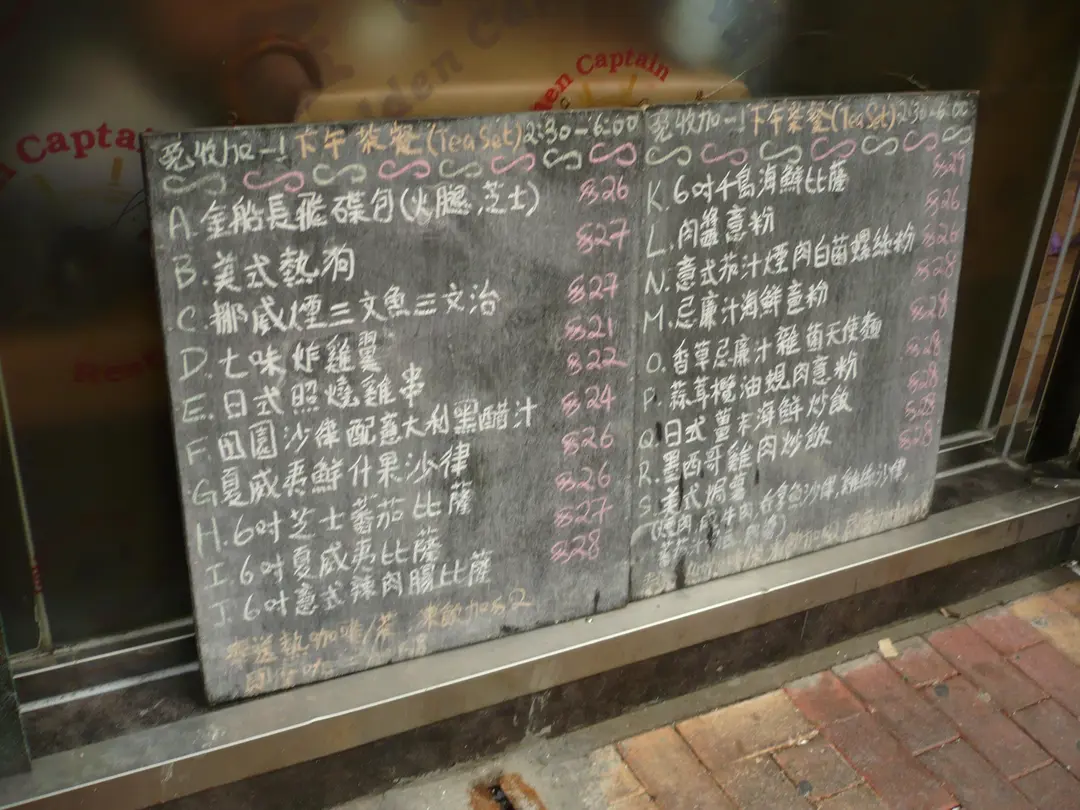 Captain
den Captain
免收加一!下午茶餐(Tea Set)2:30-6:00
A.金船長飛碟包(火腿,芝士) $26
B.美式熱狗 $27
C.挪威煙三文魚三文治 $27
D.七味炸雞翼 $21
E.日式照燒雞串 $22
F.田園沙律配意大利黑醋汁 $24
G.夏威夷鮮什果沙律 $26
H.6吋芝士蕃茄比薩 $26
I.6吋夏威夷比薩 $27
J.6吋意式辣肉腸比薩 $28
送熱咖啡/茶 凍飲加$2
免收加一!下午茶餐(Tea Set)2:30-6:00
K.6吋千島海鮮比薩 $29
L.肉醬意粉 $26
N.意式茄汁煙肉白菌螺絲粉 $26
M.忌廉汁海鮮意粉 $28
O.香草忌廉汁雜菌天使麵 $28
P.蒜茸欖油蜆肉意粉 $28
Q.日式薑末海鮮炒飯 $28
R.墨西哥雞肉炒飯 $28
S.美式焗薯 $28